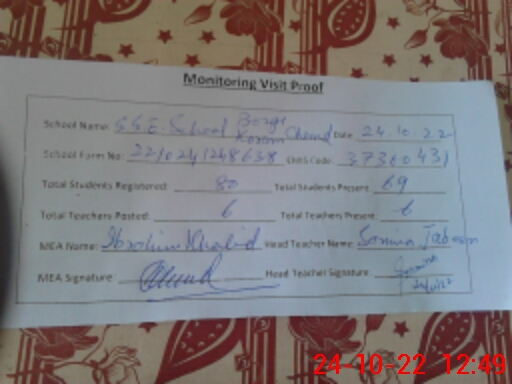 Monitoring Visit Proof
School Name: S.S.E. School Borge Karam Chand Date: 24.10.22
School Form No: 2210241248638 EMIS Code: 37360431
Total Students Registered: 80 Total Students Present: 69
Total Teachers Posted: 6 Total Teachers Present: 6
MEA Name: Ibrahim Khalid Head Teacher Name: Samina
MEA Signature: Head Teacher Signature: Samina
24/10/22
24-10-22 12:49